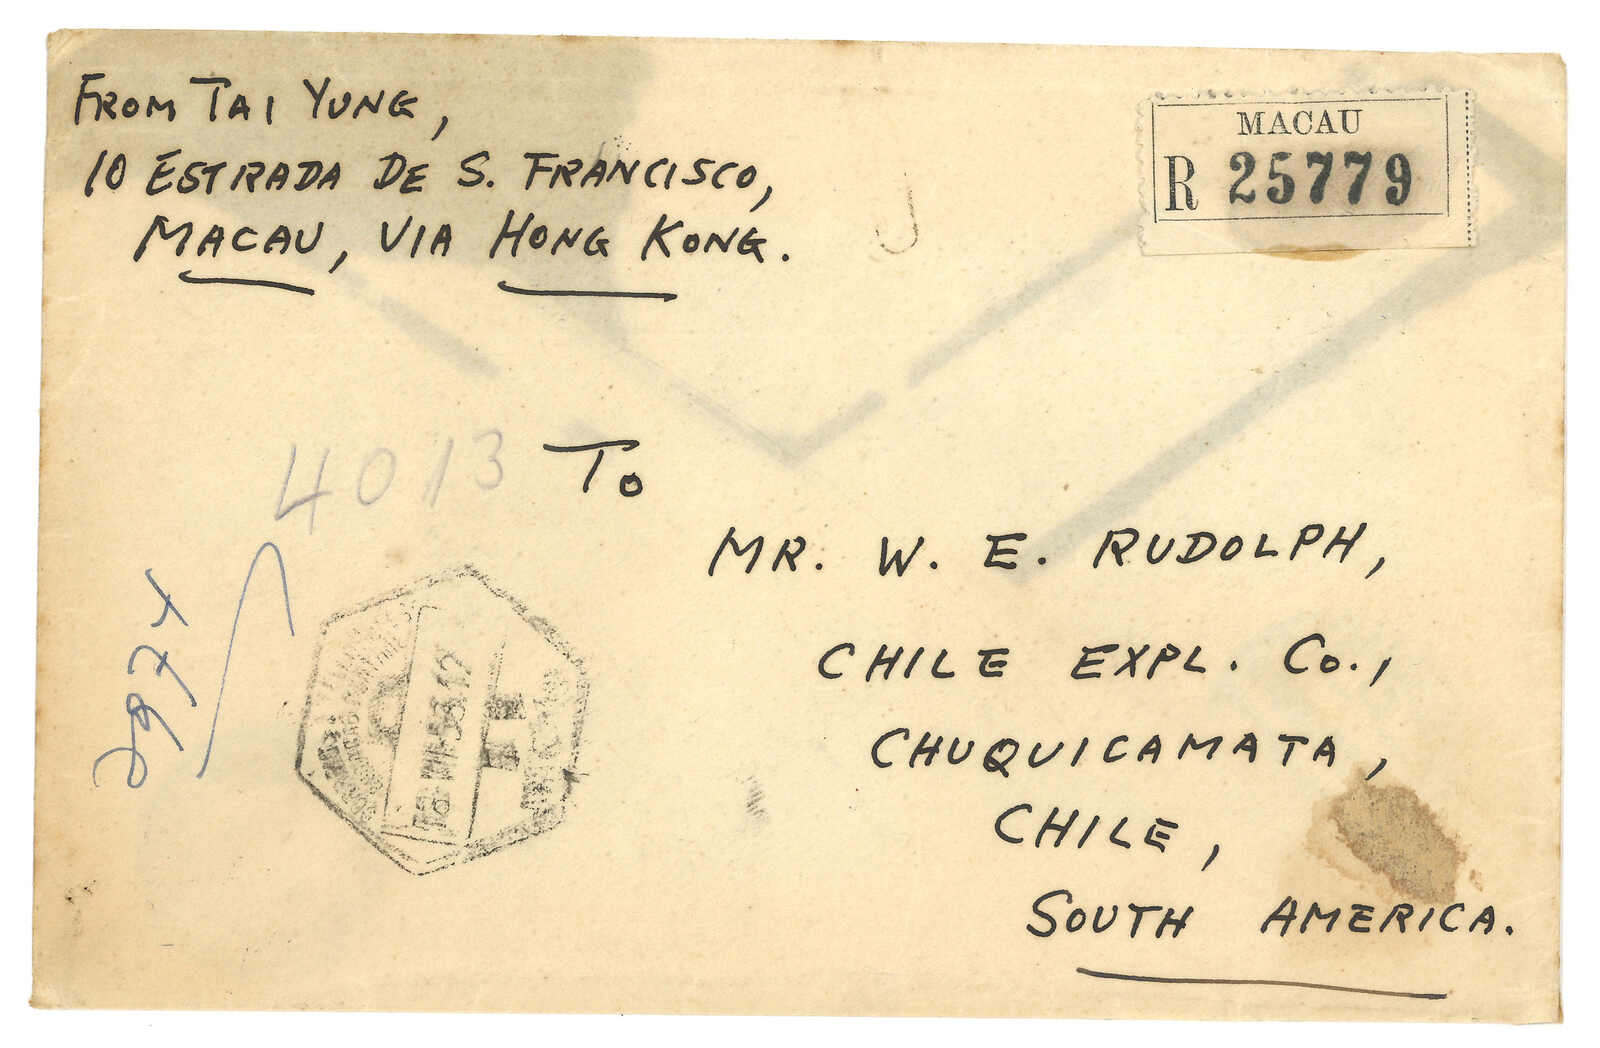 FROM TAI YUNG,
10 ESTRADA DE S. FRANCISCO,
MACAU, VIA HONG KONG.
MACAU
R 25779
4013
TO
MR. W. E. RUDOLPH,
CHILE EXPL. CO.,
CHUQUICAMATA,
CHILE,
SOUTH AMERICA.
2974